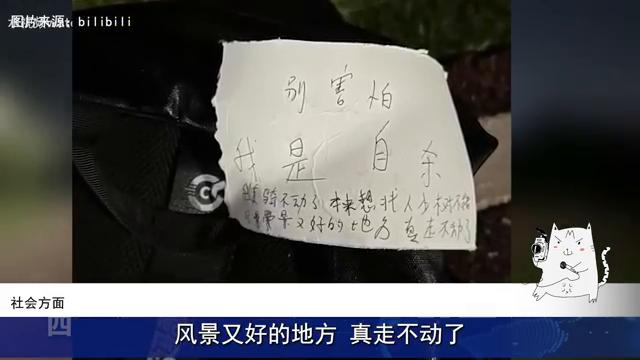 图片来源：bilibili
别害怕
我是自杀
骑不动了 本来想找人少
景又好的地方 真走不动了
社会方面
四
风景又好的地方 真走不动了